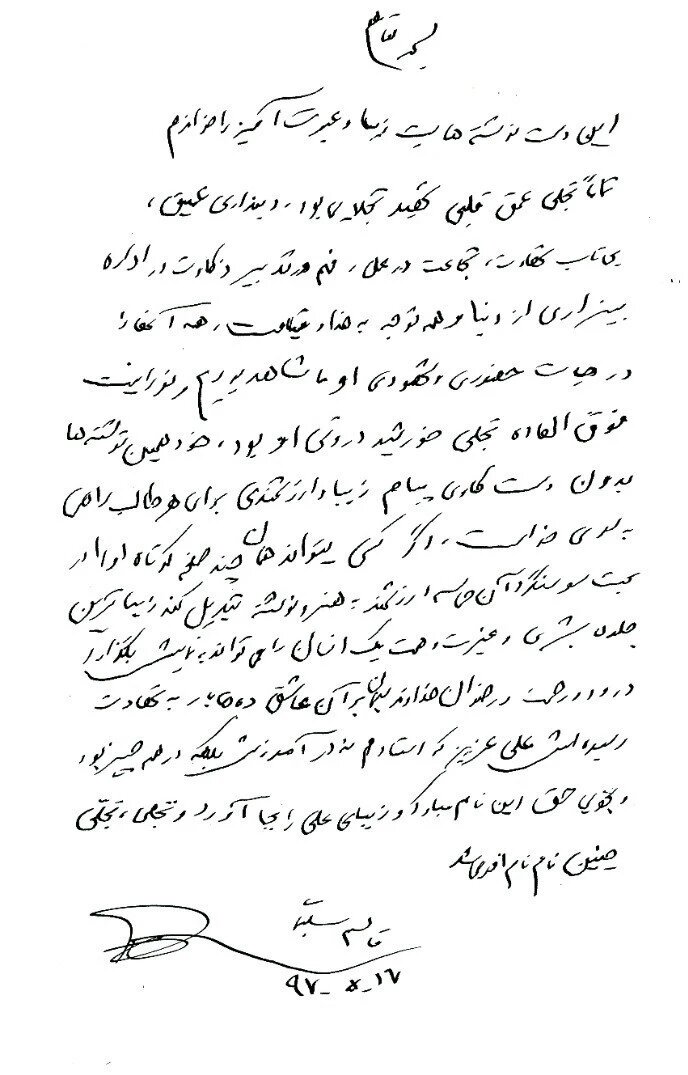 بسمه تعالی
این دست نوشته هایت زیبا و عبرت آمیز را خواندم
تماماً تجلی عمق قلبی شهید تجلایی بود، دینداری عمیق،
بی‌تاب شهادت، شجاعت در عمل، فهم در تدبیر ذکاوت در اداره
بیزاری از دنیا و همه توجه به خدا و قیامت، همه آنها را
در حیات حضوری و شهودی او ما شاهد بودیم، نورانیت
فوق العاده تجلی خورشید درونی او بود، خود همین نوشته‌ها
بدون دست کاری پیام زیبا و ارزشمندی برای هر طالب راهی
به سوی خداست، اگر کسی بتواند همان چند صفحه کوتاه او را در
سوسنگرد آن حماسه ارزشمند به هنر و نوشته تبدیل کند زیباترین
جلوه بشری و غیرت و همت یک انسان را می تواند به نمایش بگذارد
درود و رحمت و رضوان خداوند سبحان بر آن عاشق به شهادت
رسیده اش علی عزیز که استادم نه در آموزش بلکه در همه چیز بود
و بخوبی حق این نام مبارک و زیبای علی را بجا آورد و تجلی، تجلّی
چنین نام نام آوری شد
قاسم سلیمانی
۹۷-۸-۱۶